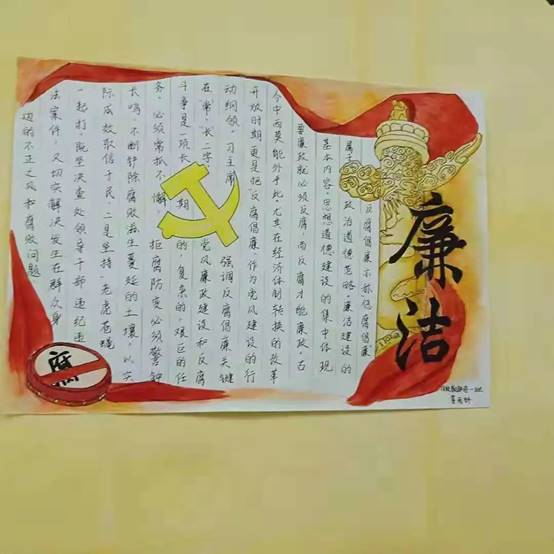 廉洁
反腐倡廉亦称“倡廉
属于政治道德范畴，廉洁建设的
基本内容，思想道德建设的集中体现
要廉政就必须反腐，而反腐才能廉政，古
今中西莫能外乎此。尤其在经济体制转换的改革
开放时期更是把“反腐倡廉”作为党风建设的行
动纲领，习主席强调反腐倡廉关键
在“常”“长”二字党风廉政建设和反腐
斗争是一项长期的，复杂的，艰巨的任
务。必须常抓不懈，拒腐防变必须警钟
长鸣。不断铲除腐败滋生蔓延的土壤，以实
际成效取信于民。二是坚持“老虎苍蝇
一起打，既坚决查处领导干部违纪违
法案件，又切实解决发生在群众身
边的不正之风和腐败问题
腐